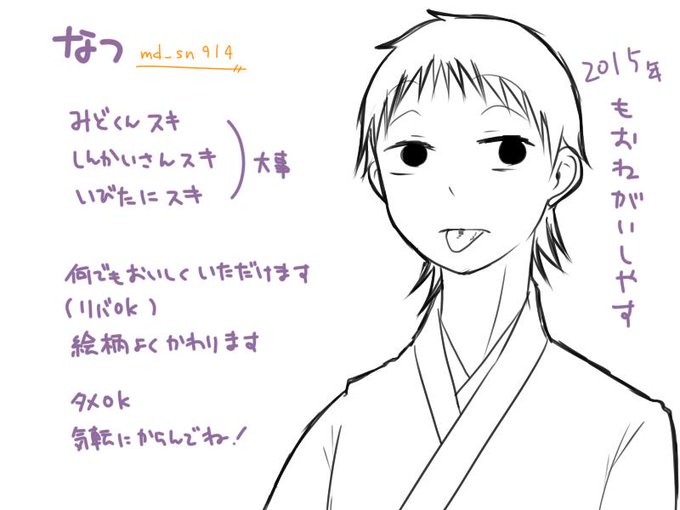 なつ md_sn914
みどくんスキ
しんかいさんスキ
いびたにスキ
大事
何でもおいしくいただけます
(リバOK)
絵柄よくかわります
タメOK
気転にからんでね!
2015年
もおねがいしやす